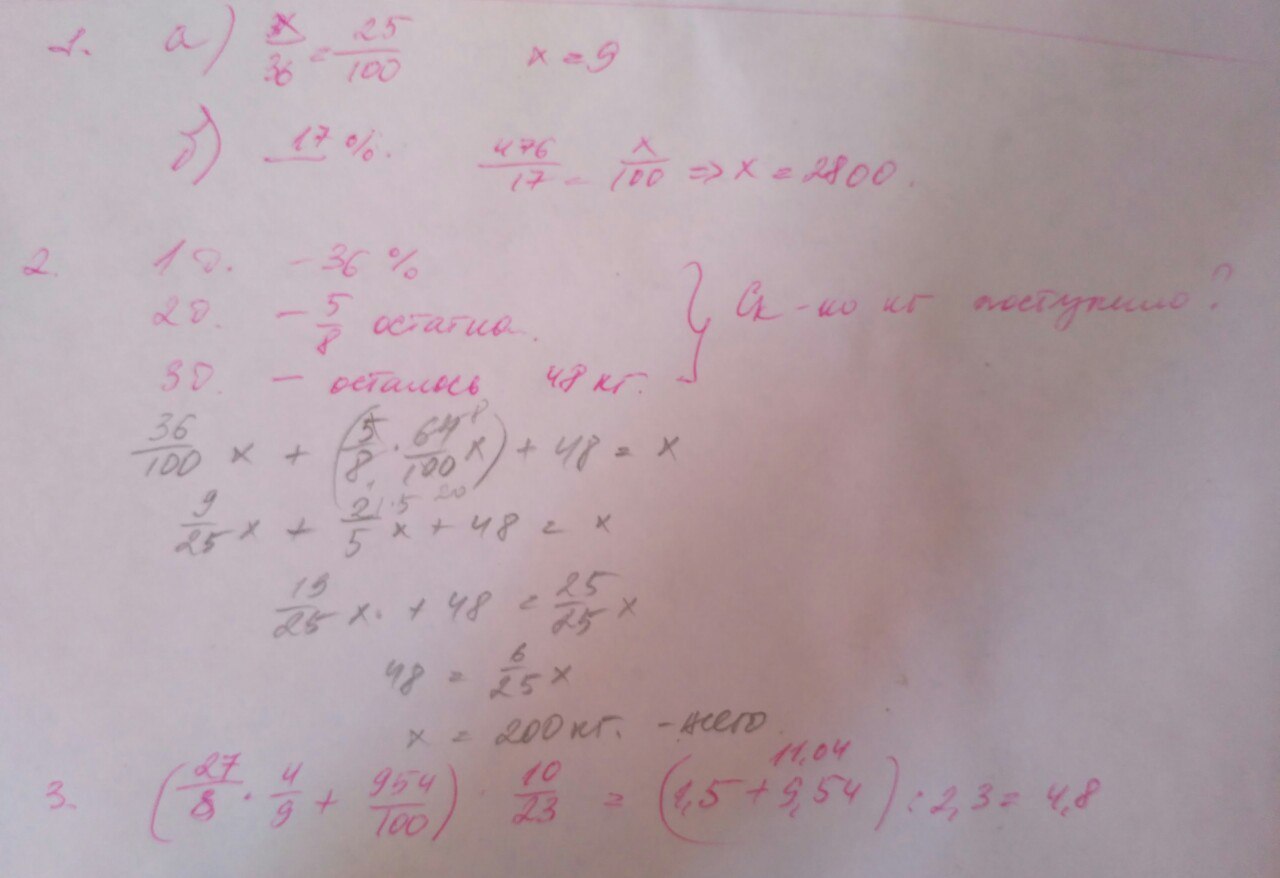 1. а) x/36 = 25/100 x = 9
б) 17 %. 476/17 = x/100 => x = 2800.
2. 1 д. - 36 %
2 д. - 5/8 остатка.
3 д. - осталось 48 кг. } Ск-ко кг поступило?
36/100 x + (5/8 · 64/100 x) + 48 = x
9/25 x + 2/5 x + 48 = x
19/25 x + 48 = 25/25 x
48 = 6/25 x
x = 200 кг. - всего
3. (27/8 · 4/9 + 954/100) · 10/23 = (1,5 + 9,54) : 2,3 = 4,8
11,04